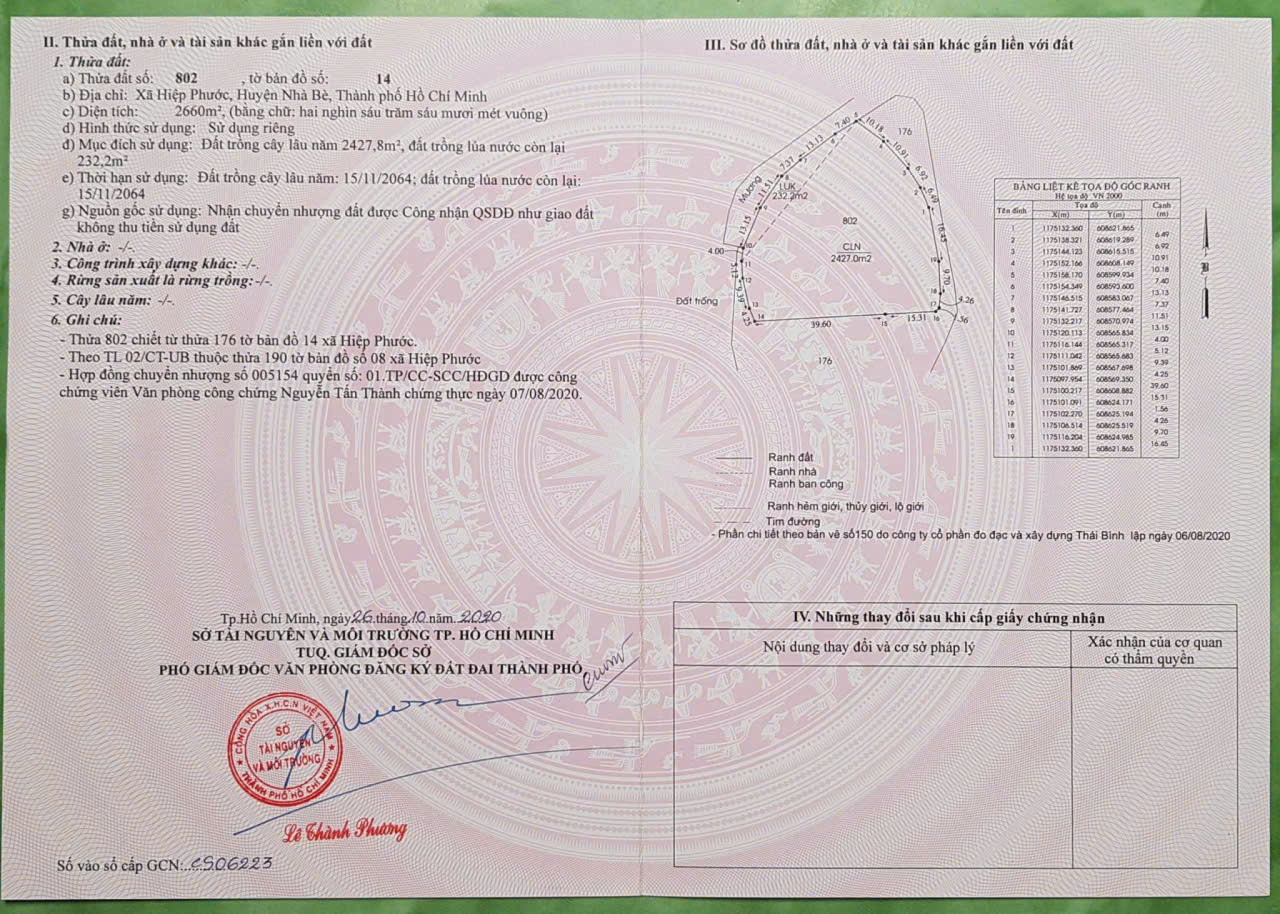 II. Thửa đất, nhà ở và tài sản khác gắn liền với đất
1. Thửa đất:
a) Thửa đất số: 802 , tờ bản đồ số: 14
b) Địa chỉ: Xã Hiệp Phước, Huyện Nhà Bè, Thành phố Hồ Chí Minh
c) Diện tích: 2660m², (bằng chữ: hai nghìn sáu trăm sáu mươi mét vuông)
d) Hình thức sử dụng: Sử dụng riêng
đ) Mục đích sử dụng: Đất trồng cây lâu năm 2427,8m², đất trồng lúa nước còn lại
232,2m²
e) Thời hạn sử dụng: Đất trồng cây lâu năm: 15/11/2064; đất trồng lúa nước còn lại:
15/11/2064
g) Nguồn gốc sử dụng: Nhận chuyển nhượng đất được Công nhận QSDĐ như giao đất
không thu tiền sử dụng đất
2. Nhà ở: -/-.
3. Công trình xây dựng khác: -/-.
4. Rừng sản xuất là rừng trồng:-/-.
5. Cây lâu năm: -/-.
6. Ghi chú:
- Thửa 802 chiết từ thửa 176 tờ bản đồ 14 xã Hiệp Phước.
- Theo TL 02/CT-UB thuộc thửa 190 tờ bản đồ số 08 xã Hiệp Phước
- Hợp đồng chuyển nhượng số 005154 quyển số: 01.TP/CC-SCC/HĐGD được công
chứng viên Văn phòng công chứng Nguyễn Tấn Thành chứng thực ngày 07/08/2020.
Tp.Hồ Chí Minh, ngày 26 tháng 10 năm 2020
SỞ TÀI NGUYÊN VÀ MÔI TRƯỜNG TP. HỒ CHÍ MINH
TUQ. GIÁM ĐỐC SỞ
PHÓ GIÁM ĐỐC VĂN PHÒNG ĐĂNG KÝ ĐẤT ĐAI THÀNH PHỐ
CỘNG HÒA X.H.C.N VIỆT NAM
SỞ
TÀI NGUYÊN
VÀ MÔI TRƯỜNG
THÀNH PHỐ HỒ CHÍ MINH
Lê Thành Phương
Số vào sổ cấp GCN:..CS06223
III. Sơ đồ thửa đất, nhà ở và tài sản khác gắn liền với đất
176
7.40
10.18
13.13
10.91
7.37
6.92
Mương
11.51
LUK
232.2m2
6.49
13.15
802
16.45
4.00
CLN
2427.0m2
5.12
9.39
9.70
Đất trống
4.25
4.26
39.60
15.31
1.56
176
BẢNG LIỆT KÊ TỌA ĐỘ GÓC RANH
Hệ tọa độ VN 2000
Tên đỉnh Tọa độ Cạnh
X(m) Y(m) (m)
1 1175132.360 608621.865
6.49
2 1175138.321 608619.289
6.92
3 1175144.123 608615.515
10.91
4 1175152.166 608608.149
10.18
5 1175158.170 608599.934
7.40
6 1175154.349 608593.600
13.13
7 1175146.515 608583.067
7.37
8 1175141.727 608577.464
11.51
9 1175132.217 608570.974
13.15
10 1175120.113 608565.834
4.00
11 1175116.144 608565.317
5.12
12 1175111.042 608565.683
9.39
13 1175101.869 608567.698
4.25
14 1175097.954 608569.350
39.60
15 1175100.217 608608.882
15.31
16 1175101.091 608624.171
1.56
17 1175102.270 608625.194
4.26
18 1175106.514 608625.519
9.70
19 1175116.204 608624.985
16.45
1 1175132.360 608621.865
Ranh đất
Ranh nhà
Ranh ban công
Ranh hẻm giới, thủy giới, lộ giới
Tim đường
- Phần chi tiết theo bản vẽ số150 do công ty cổ phần đo đạc và xây dựng Thái Bình lập ngày 06/08/2020
IV. Những thay đổi sau khi cấp giấy chứng nhận
Nội dung thay đổi và cơ sở pháp lý
Xác nhận của cơ quan
có thẩm quyền